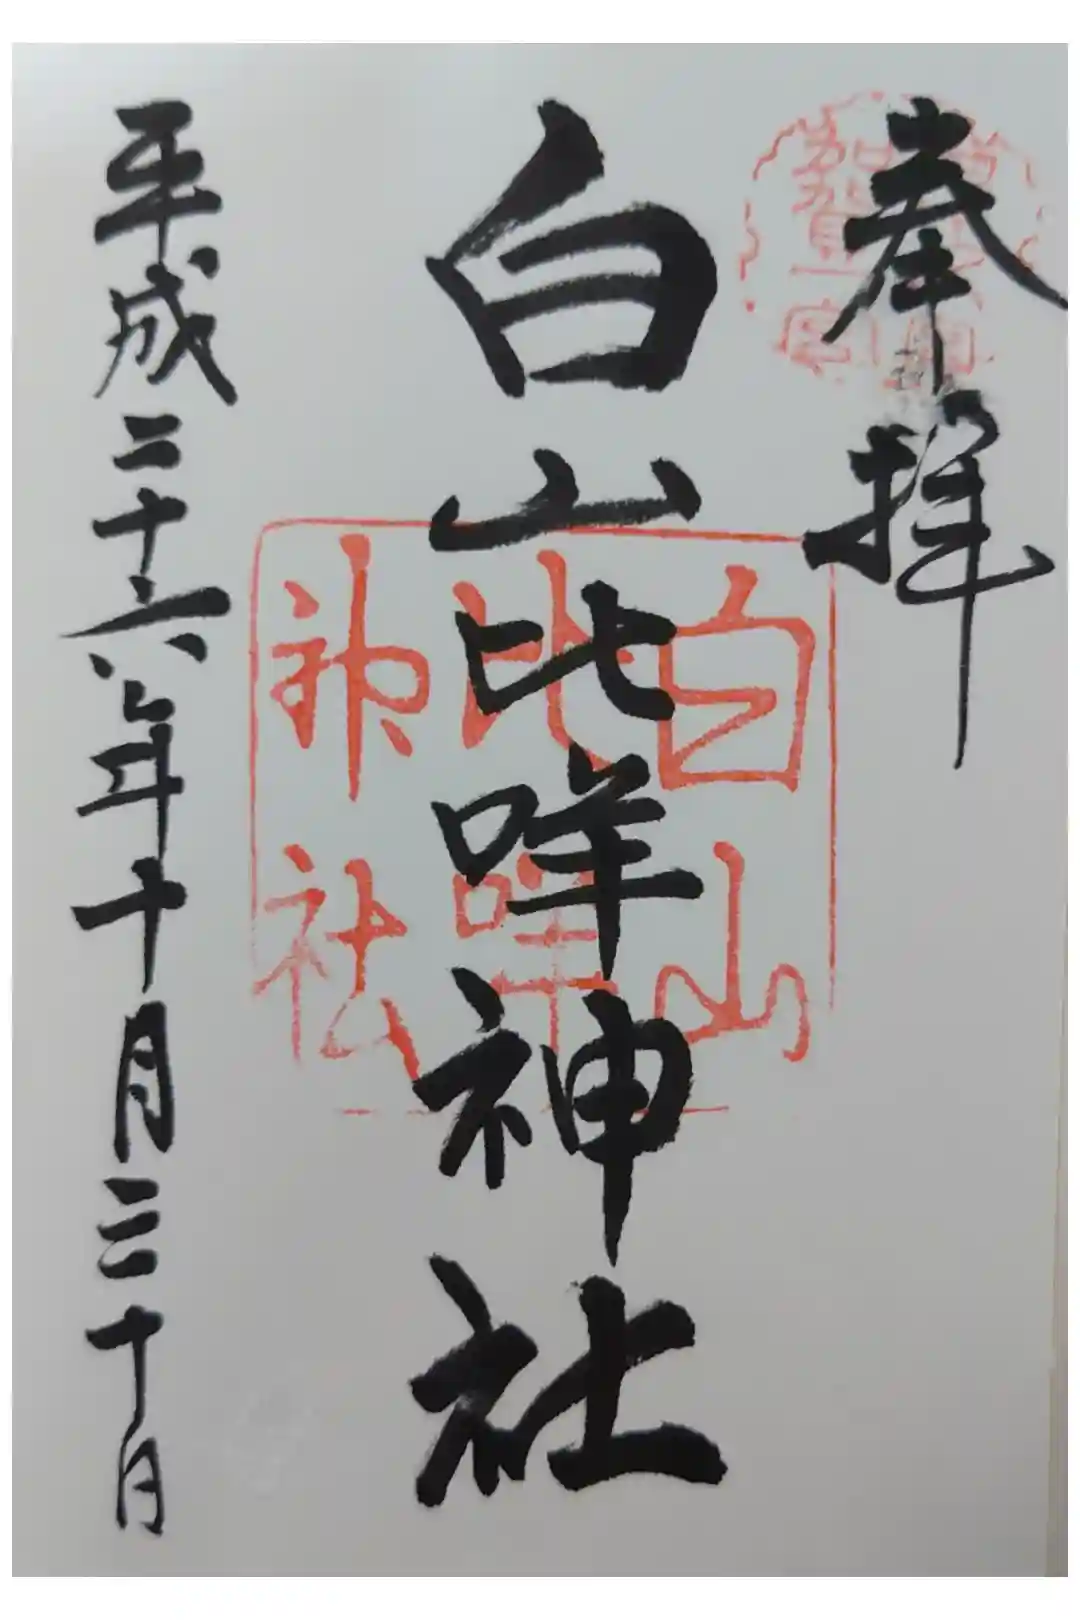 奉拝
白山比咩神社
白山
比咩
神社
平成二十六年十月三十日